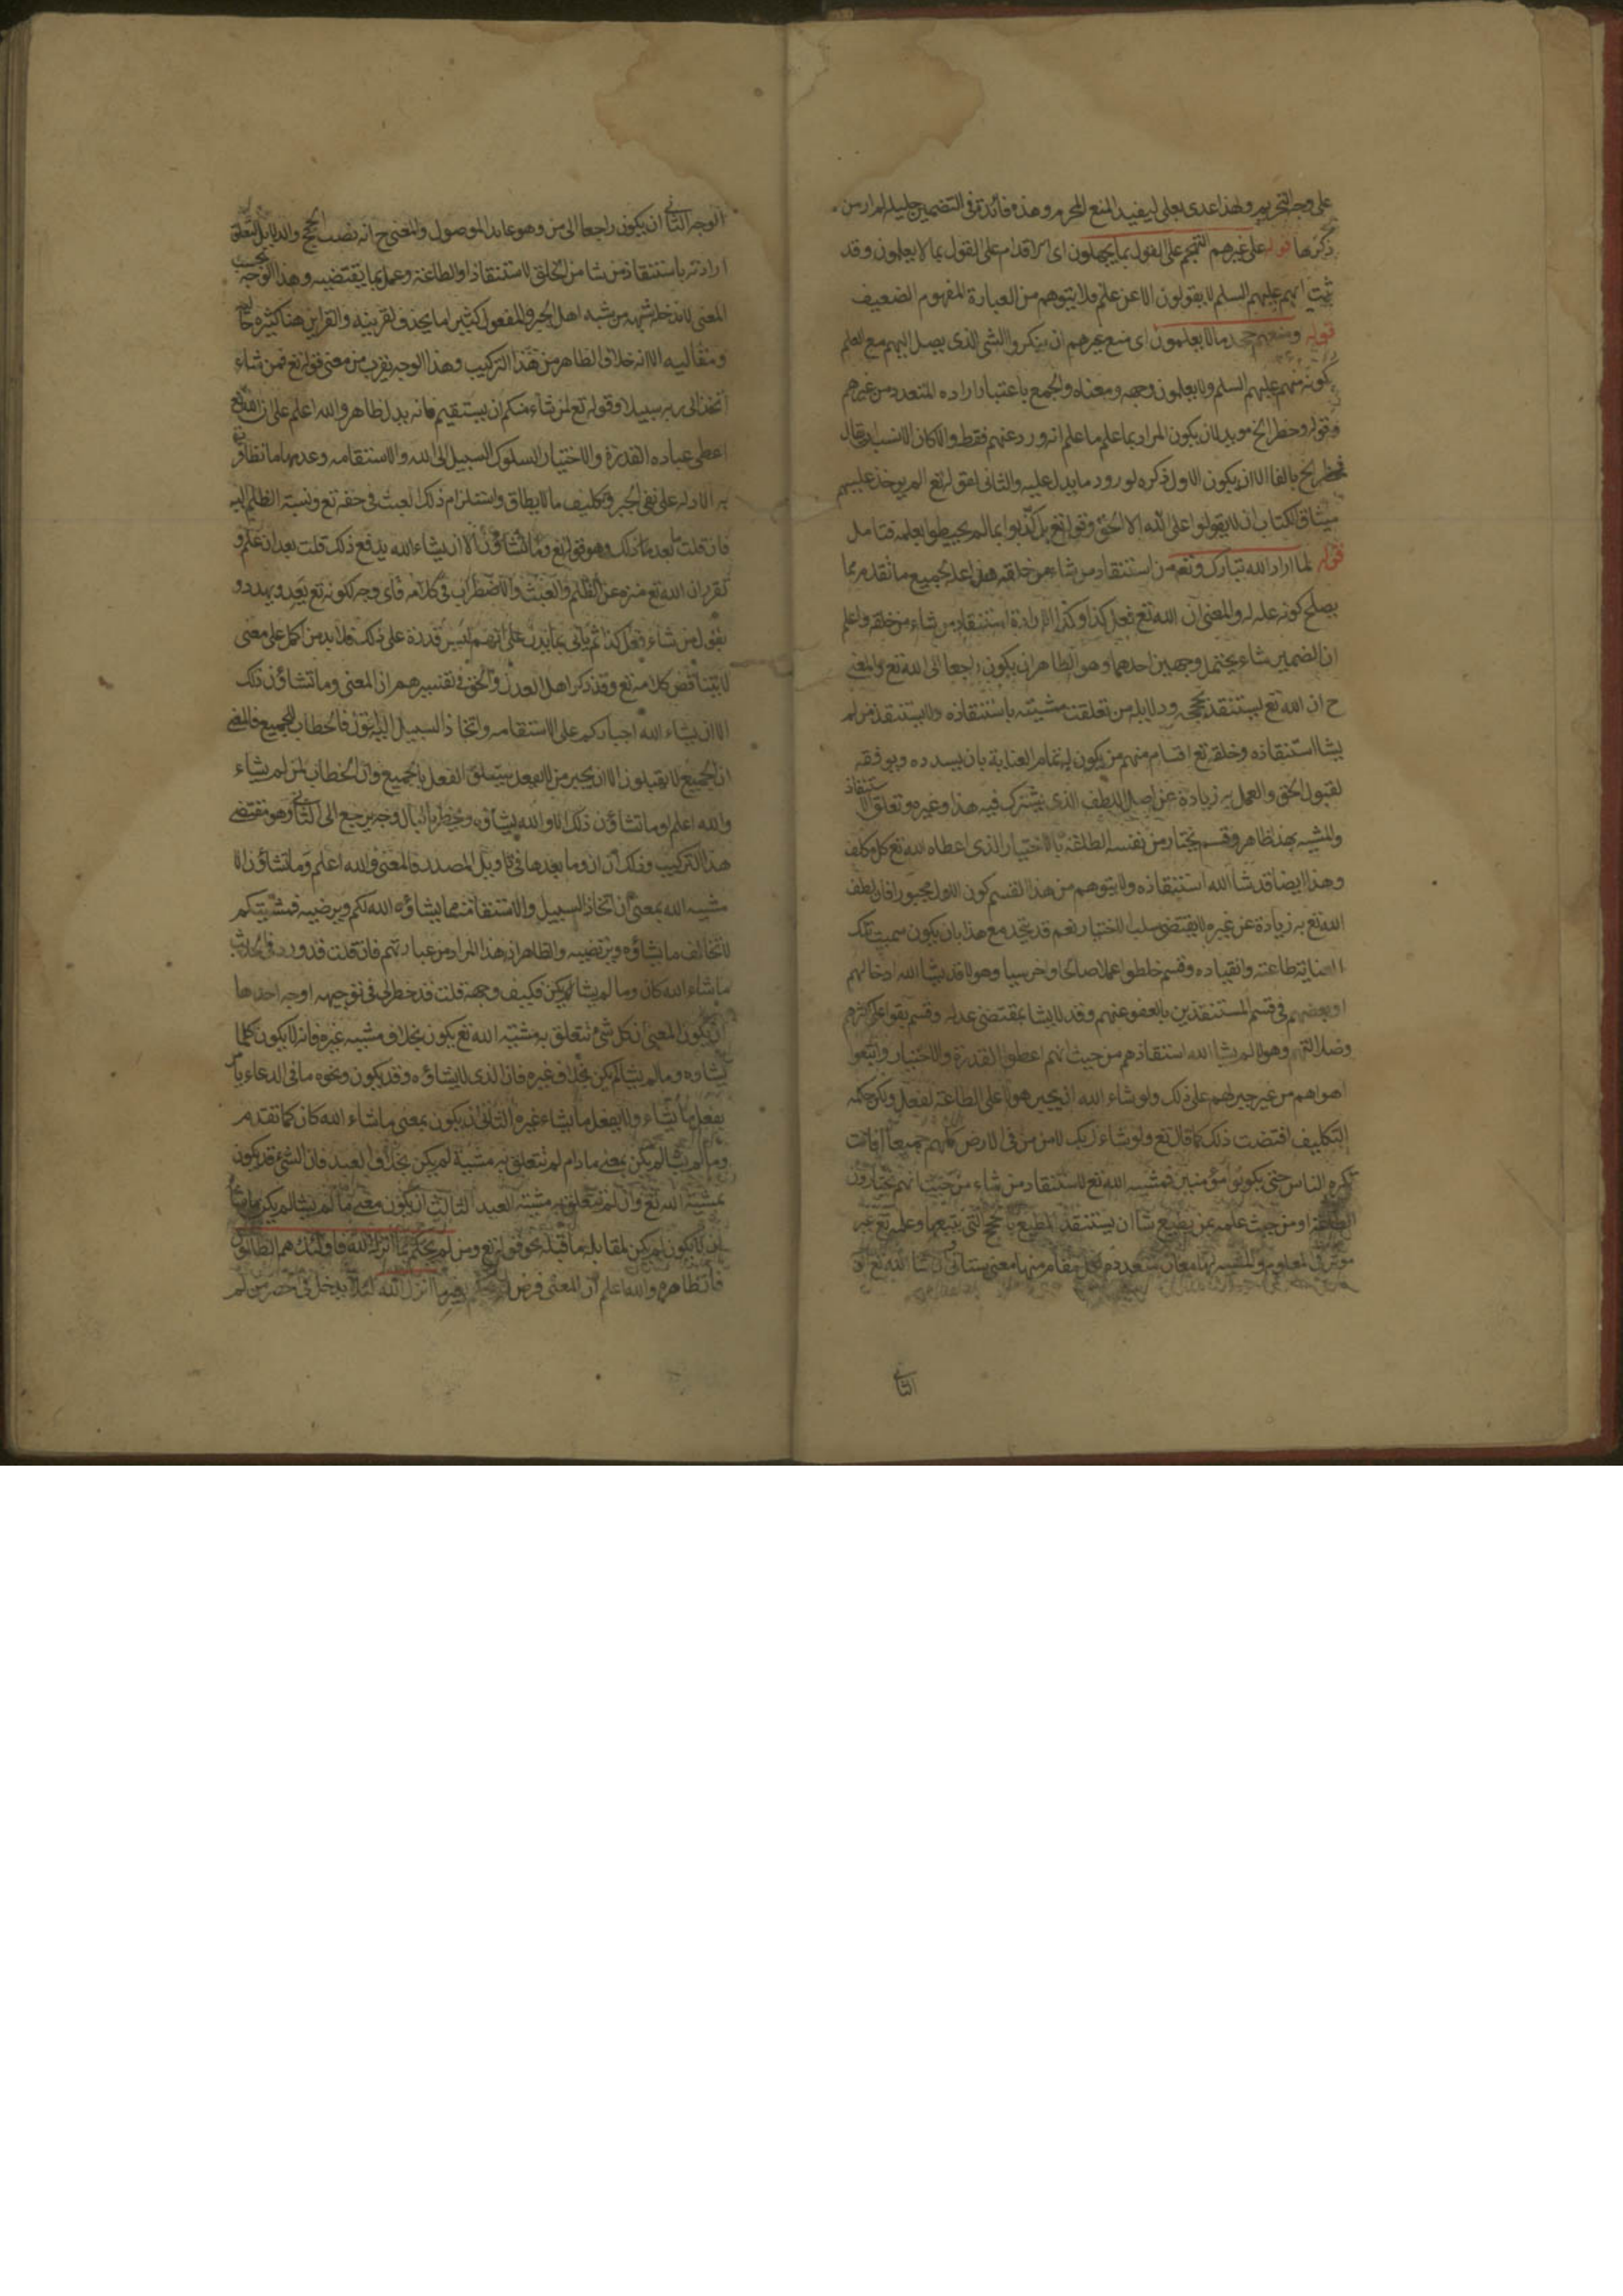 على وجه التحريم ولهذا عدى بعلى ليفيد المنع المحرم وهذه فائدة في التضمين جليلة المراد من
ذكرها قوله على غيرهم التهجم على القول بما يجهلون اى الاقدام على القول بما لا يعلمون وقد
ثبت انهم عليهم السلم لا يقولون الا عن علم فلا يتوهم من العبارة المفهوم الضعيف
قوله ومنعهم جحد ما لا يعلمون اى منع غيرهم ان ينكروا الشى الذى يصل اليهم مع العلم
بكونه منهم عليهم السلم ولا يعلمون وجهه ومعناه والجمع باعتبار اراده المتعدد من غيرهم
وقوله وحظر الخ مويد لان يكون المراد بما علم ما علم انه ورد عنهم فقط والا كان الانسب ان يقال
فحظر الخ بالفا الا ان يكون الاول ذكره لورود ما يدل عليه والثانى لقوله تع الم يوخذ عليهم
ميثاق الكتاب ان لا يقولوا على الله الا الحق وقوله تع بل كذبوا بما لم يحيطوا بعلمه فتامل
قوله لما اراد الله تبارك وتع من استنقاذ من شاء من خلقه هذا علة لجميع ما تقدم مما
يصلح كونه علة له والمعنى ان الله تع فعل كذا وكذا لارادة استنقاذ من شاء من خلقه واعلم
ان الضمير شاء يحتمل وجهين احدهما وهو الظاهر ان يكون راجعا الى الله تع والمعنى
ح ان الله تع ليستنقذ بحججه ودلايله من تعلقت مشيته باستنقاذه ولا يستنقذ من لم
يشا استنقاذه وخلقه تع اقسام منهم من يكون له تمام العناية بان يسدده ويوفقه
لقبول الحق والعمل به زيادة عن اصل اللطف الذى يشترك فيه هذا وغيره وتعلق الاستنقاذ
والمشيه بهذا ظاهر وقسم يختار من نفسه الطاعة بالاختيار الذى اعطاه الله تع كل مكلف
وهذا ايضا قد شا الله استنقاذه ولا يتوهم من هذا القسم كون الاول مجبورا فان لطف
الله تع به زيادة عن غيره لا يقتضى سلب الاختيار نعم قد يتحد مع هذا بان يكون سبب تلك
العناية طاعته وانقياده وقسم خلطوا عملا صالحا واخر سيا وهولا قد يشا الله ادخالهم
او بعضهم فى قسم المستنقذين بالعفو عنهم وقد لا يشا بمقتضى عدله وقسم بقوا على كفرهم
وضلالتهم وهولا لم يشا الله استنقاذهم من حيث انهم اعطوا القدرة والاختيار واتبعوا
اهواهم من غير جبر لهم على ذلك ولو شاء الله ان يجبر هولا على الطاعة لفعل ولكن حكمة
التكليف اقتضت ذلك كما قال تع ولو شاء ربك لامن من فى الارض كلهم جميعا افانت
تكره الناس حتى يكونوا مؤمنين فمشيه الله تع لاستنقاذ من شاء من حيث انهم يختارون
الطاعة او من حيث علمه بمن يطيع شا ان يستنقذ المطيع بالحجج التى يتبعها وعلمه تع غير
موثر فى المعلوم والمشيه لها معان متعددة لكل مقام منها معنى يستاتى ان شا الله تع
الثانى
الوجه الثانى ان يكون راجعا الى من وهو عايد الموصول والمعنى ح انه نصب الحجج والدلايل لتعلق
ارادته باستنقاذ من شا من الخلق الاستنقاذ والطاعة وعمل بما يقتضيه وهذا الوجه بحسب
المعنى لا تدخله شبهة من شبه اهل الجبر والمفعول كثيرا ما يحذف لقرينه والقراين هنا كثيره حاليه
ومقاليه الا انه خلاف الظاهر من هذا التركيب وهذا الوجه يقرب من معنى قوله تع فمن شاء
اتخذ الى ربه سبيلا وقوله تع لمن شاء منكم ان يستقيم فانه يدل ظاهر والله اعلم على ان الله تع
اعطى عباده القدرة والاختيار لسلوك السبيل الى الله والاستقامه وعدمهما ما تظافرت
به الادله على نفى الجبر وتكليف ما لا يطاق واستلزام ذلك العبث فى حقه تع ونسبة الظلم اليه
فان قلت ما بعد ذلك وهو قوله تع وما تشاؤن الا ان يشاء الله يدفع ذلك قلت بعد ان علم و
تقرر ان الله تع منزه عن الظلم والعبث والاضطراب فى كلامه فاى وجه لكونه تع يعد ويهدد و
يقول من شاء فعل كذا ثم ياتى بما يدل على انهم ليس قدرة على ذلك فلا بد من حمل على معنى
لا يتناقض كلامه تع وقد ذكر اهل العدل والحق فى تفسيرهم ان المعنى وما تشاؤن ذلك
الا ان يشاء الله اجباركم على الاستقامه واتخاذ السبيل اليه فالخطاب للجميع فالمعنى
ان الجميع لا يقبلون الا ان يجبر من لا يفعل ليتعلق الفعل بالجميع وان الخطاب لمن لم يشاء
والله اعلم وما تشاؤن ذلك الا والله يشاؤه ويخطر بالبال وجه يرجع الى الثانى وهو مقتضى
هذا التركيب وذلك ان ان وما بعدها فى تاويل المصدر فالمعنى والله اعلم وما تشاؤن الا
مشيه الله بمعنى ان اتخاذ السبيل والاستقامة مما يشاؤه الله لكم ويرضيه فمشيتكم
لا تخالف ما يشاؤه ويرتضيه والظاهر ان هذا المراد من عبارتهم فان قلت قد ورد فى الحديث
ما شاء الله كان وما لم يشا لم يكن فكيف وجهه قلت قد خطر لى فى توجيهه اوجه احدها
ان يكون المعنى ان كل شى تتعلق به مشية الله تع يكون بخلاف مشيه غيره فانه لا يكون كلما
يشاوه وما لم يشا لم يكن بخلاف غيره فان الذى لا يشاؤه قد يكون ونحوه ما فى الدعاء يا من
يفعل ما يشاء ولا يفعل ما يشاء غيره الثانى ان يكون بمعنى ما شاء الله كان كما تقدم
وما لم يشا لم يكن بمعنى ما دام لم تتعلق به مشية لم يكن بخلاف العبد فان الشئ قد يكون
بمشية الله تع وان لم تتعلق به مشية العبد الثالث ان يكون معنى ما لم يشا لم يكن ما شا
ان لا يكون لم يكن لمقابلة ما قبله نحو قوله تع ومن لم يحكم بما انزل الله فاولئك هم الظالمون
فان ظاهره والله اعلم ان المعنى فرض بغير ما انزل الله لئلا يدخل فى حصر من لم